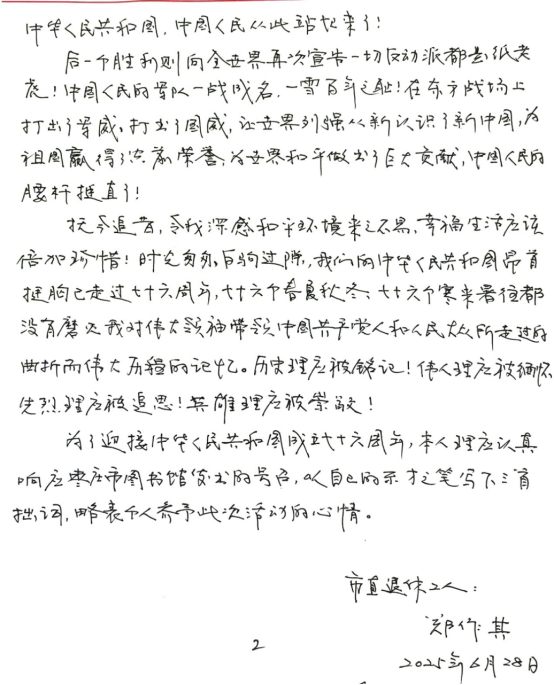 中华人民共和国，中国人民从此站起来了！
后一个胜利则向全世界再次宣告一切反动派都是纸老
虎！中国人民的军队一战成名，一雪百年之耻！在东方战场上
打出了军威，打出了国威，让世界列强从新认识了新中国，为
祖国赢得了荣誉，为世界和平做出了巨大贡献，中国人民的
腰杆挺直了！
抚今追昔，令我深感和平环境来之不易，幸福生活应该
倍加珍惜！时光匆匆，白驹过隙，我们的中华人民共和国昂首
挺胸已走过七十六周年，七十六个春夏秋冬、七十六个寒来暑往都
没有磨灭我对伟大领袖带领中国共产党人和人民大众所走过的
曲折而伟大历程的记忆。历史理应被铭记！伟人理应被缅怀
先烈理应被追思！英雄理应被崇敬！
为了迎接中华人民共和国成立七十六周年，本人理应认真
响应枣庄市图书馆发出的号召，以自己的不才之笔写下三首
拙词，略表个人参予此次活动的心情。
市直退休工人：
郑作其
2025年6月28日
2